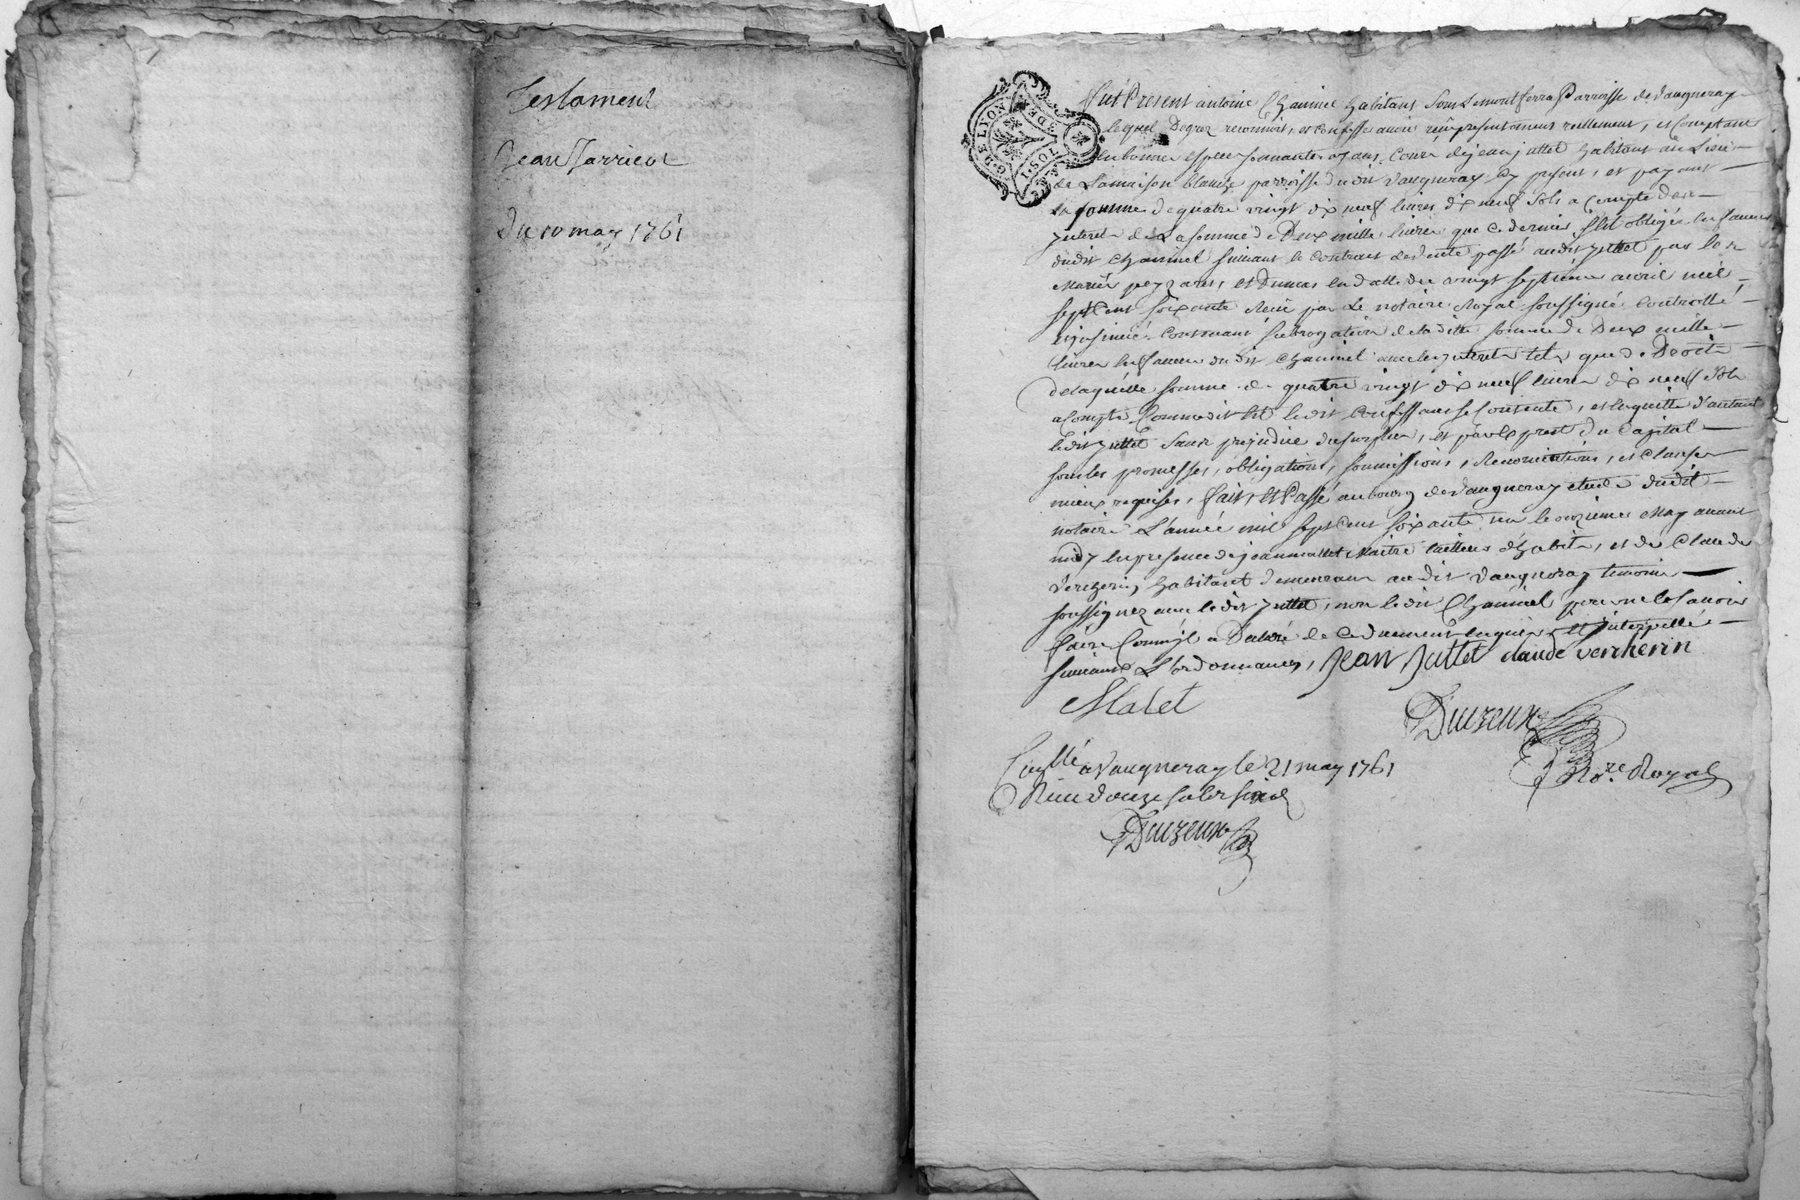 Testament
Jean Jarricot
Du 10 may 1761
G. DE LYON
Fut Present antoine Chauinel habitans Sous Lemont ferra Parroisse de Vaugneray
lequel Degrez reconnoit, et confesse auoir reçu presentement reellement, et Comptant
en bonnes especes sonnantes ayans Cours de jean juttet habitant au Lieu
de Lamaison blanche parroisse dudit Vaugneray Cy present, et payant
La somme de quatre vingt dix neuf liures dix neuf sols a Compte des
jnterets de La somme de Deux mille liures que Ce dernier s'est obligé en faueur
dudit Chauinel suiuant le Contrat de vente passé audit juttet par les
Mariés et Dumas en datte du vingt septieme auril mil
sept Cent soixante Reçu par Le notaire Royal soussigné Controllé
insinué Contenant subrogation de laditte somme de Deux mille
liures en faueur dudit Chauinel auec les jnterets tels que de Droit
de laquelle somme de quatre vingt dix neuf liures dix neuf sols
a Compte Comme dit Est ledit Confessant se Contente, et en quitte d'autant
ledit juttet sans prejudice du surplus, et par exprest du Capital
sous les promesses, obligations, soumissions, Renonciations, et Clauses
mieux requises, fait, Et Passé au bourg de Vaugneray etude dudit
notaire L'année mil sept Cent soixante un le onzieme May auant
midy en presence de jean mallet Maitre tailleur d'habits, et de Claude
Vercherin habitant demeurans audit Vaugneray temoins
soussignez auec ledit juttet, non ledit Chauinel pour ne le sauoir
faire Comm'il a Declaré de Ce duement enquis Et jnterpellé
suiuant L'ordonnances, Jean Juttet claude vercherin
Malet
Duizeux
Nore Royal
Conllé a Vaugneray le 21 may 1761
Reçu douze sols six d
Duizeux